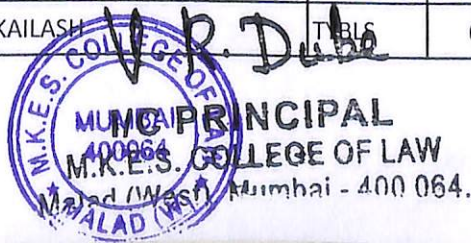 KAILASH TYBLS
V R. Dube
M.K.E.S. COLLEGE OF LAW
MUMBAI
400064
MALAD (W)
I/C PRINCIPAL
M.K.E.S. COLLEGE OF LAW
Malad (West), Mumbai - 400 064.